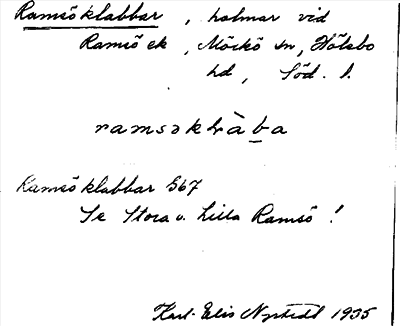 Ramsöklabbar, holmar vid
Ramsö ek, Mörkö sn, Hölebo
hd, Söd. l.
ramsəklàba
Ramsöklabbar 567
Se Stora o. Lilla Ramsö!
Karl-Elis Nystedt 1935